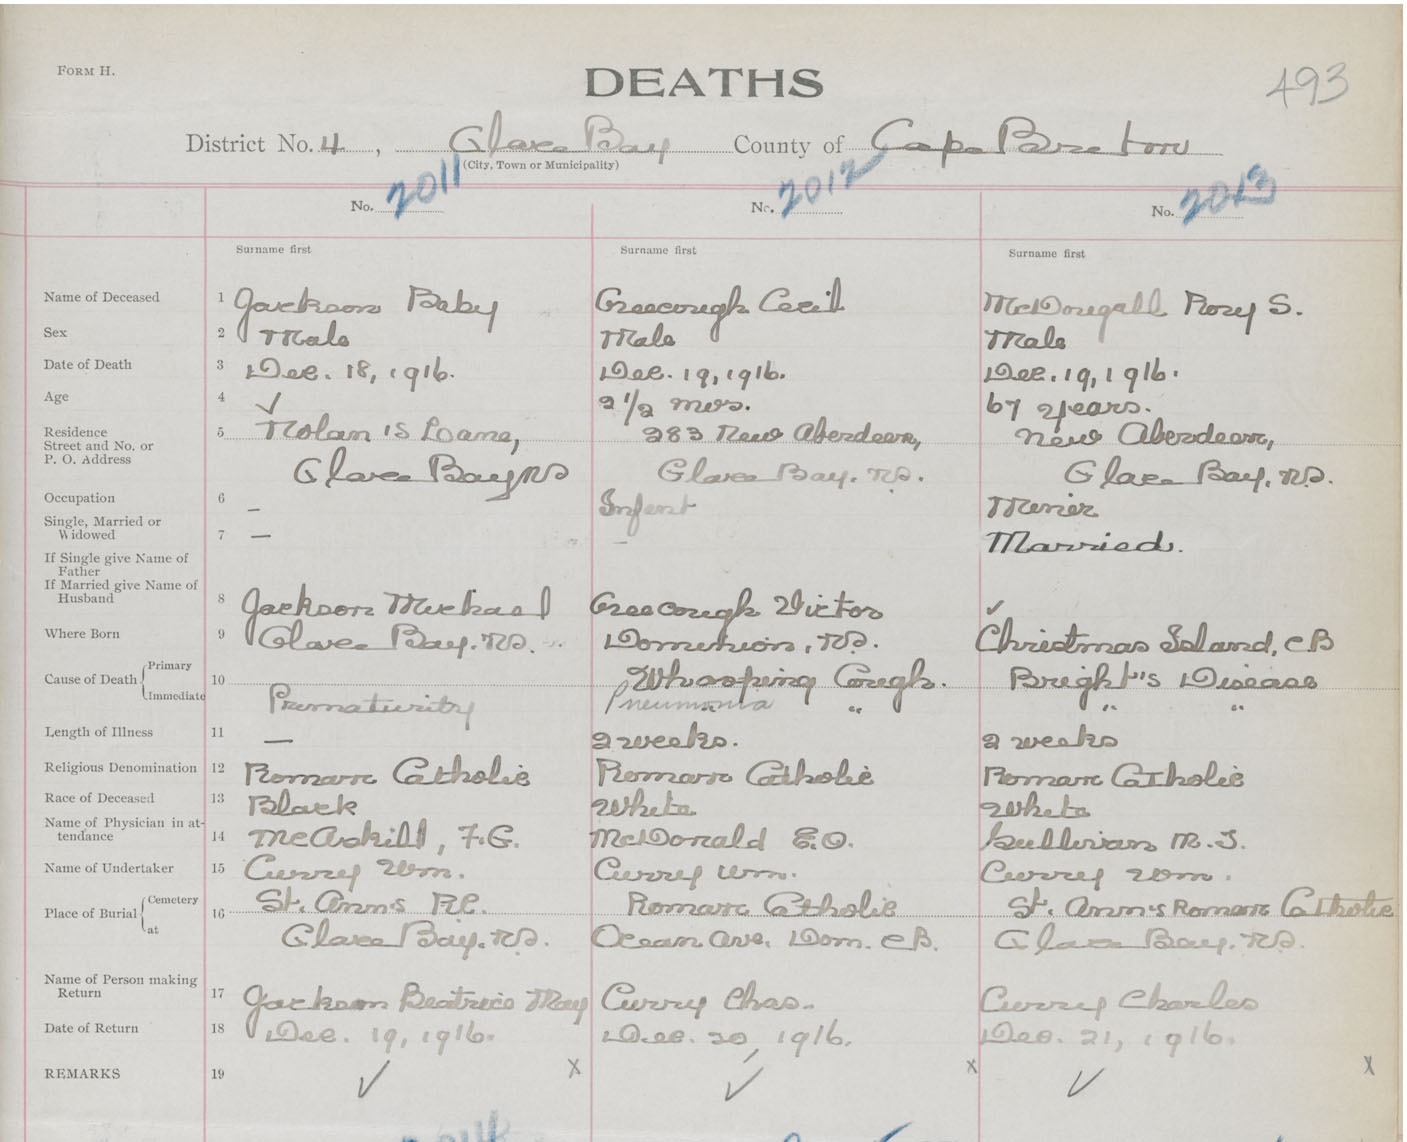 FORM H.
DEATHS
493
District No. 4, Glace Bay County of Cape Breton
(City, Town or Municipality)
No. 2011 No. 2012 No. 2013
Surname first Surname first Surname first
Name of Deceased 1 Jackson Baby Greecough Cecil McDougall Rory S.
Sex 2 Male Male Male
Date of Death 3 Dec. 18, 1916. Dec. 19, 1916. Dec. 19, 1916.
Age 4 ✓ 2 1/2 mos. 67 years.
Residence 5 Nolan's Loane, 283 New Aberdeen, New Aberdeen,
Street and No. or
P. O. Address Glace Bay NS Glace Bay. N.S. Glace Bay, N.S.
Occupation 6 — Infant Minier
Single, Married or
Widowed 7 — – Married.
If Single give Name of
Father
If Married give Name of
Husband 8 Jackson Mickael Greecough Victor ✓
Where Born 9 Glace Bay. N.S. Dominion, N.S. Christmas Island, CB
Cause of Death Primary 10 Whooping Cough. Bright's Disease
Immediate Prematurity Pneumonia " " "
Length of Illness 11 — 2 weeks. 2 weeks
Religious Denomination 12 Roman Catholic Roman Catholic Roman Catholic
Race of Deceased 13 Black White White
Name of Physician in at-
tendance 14 McAskill, F.G. McDonald E.O. Sullivan M.J.
Name of Undertaker 15 Curry Wm. Curry Wm. Curry Wm.
Place of Burial Cemetery 16 St. Ann's R.C. Roman Catholic St. Ann's Roman Catholic
at Glace Bay. N.S. Ocean Ave. Dom. CB. Glace Bay. N.S.
Name of Person making
Return 17 Jackson Beatrice May Curry Chas. Curry Charles
Date of Return 18 Dec. 19, 1916. Dec. 20, 1916. Dec. 21, 1916.
REMARKS 19 ✓ x ✓ x ✓ x